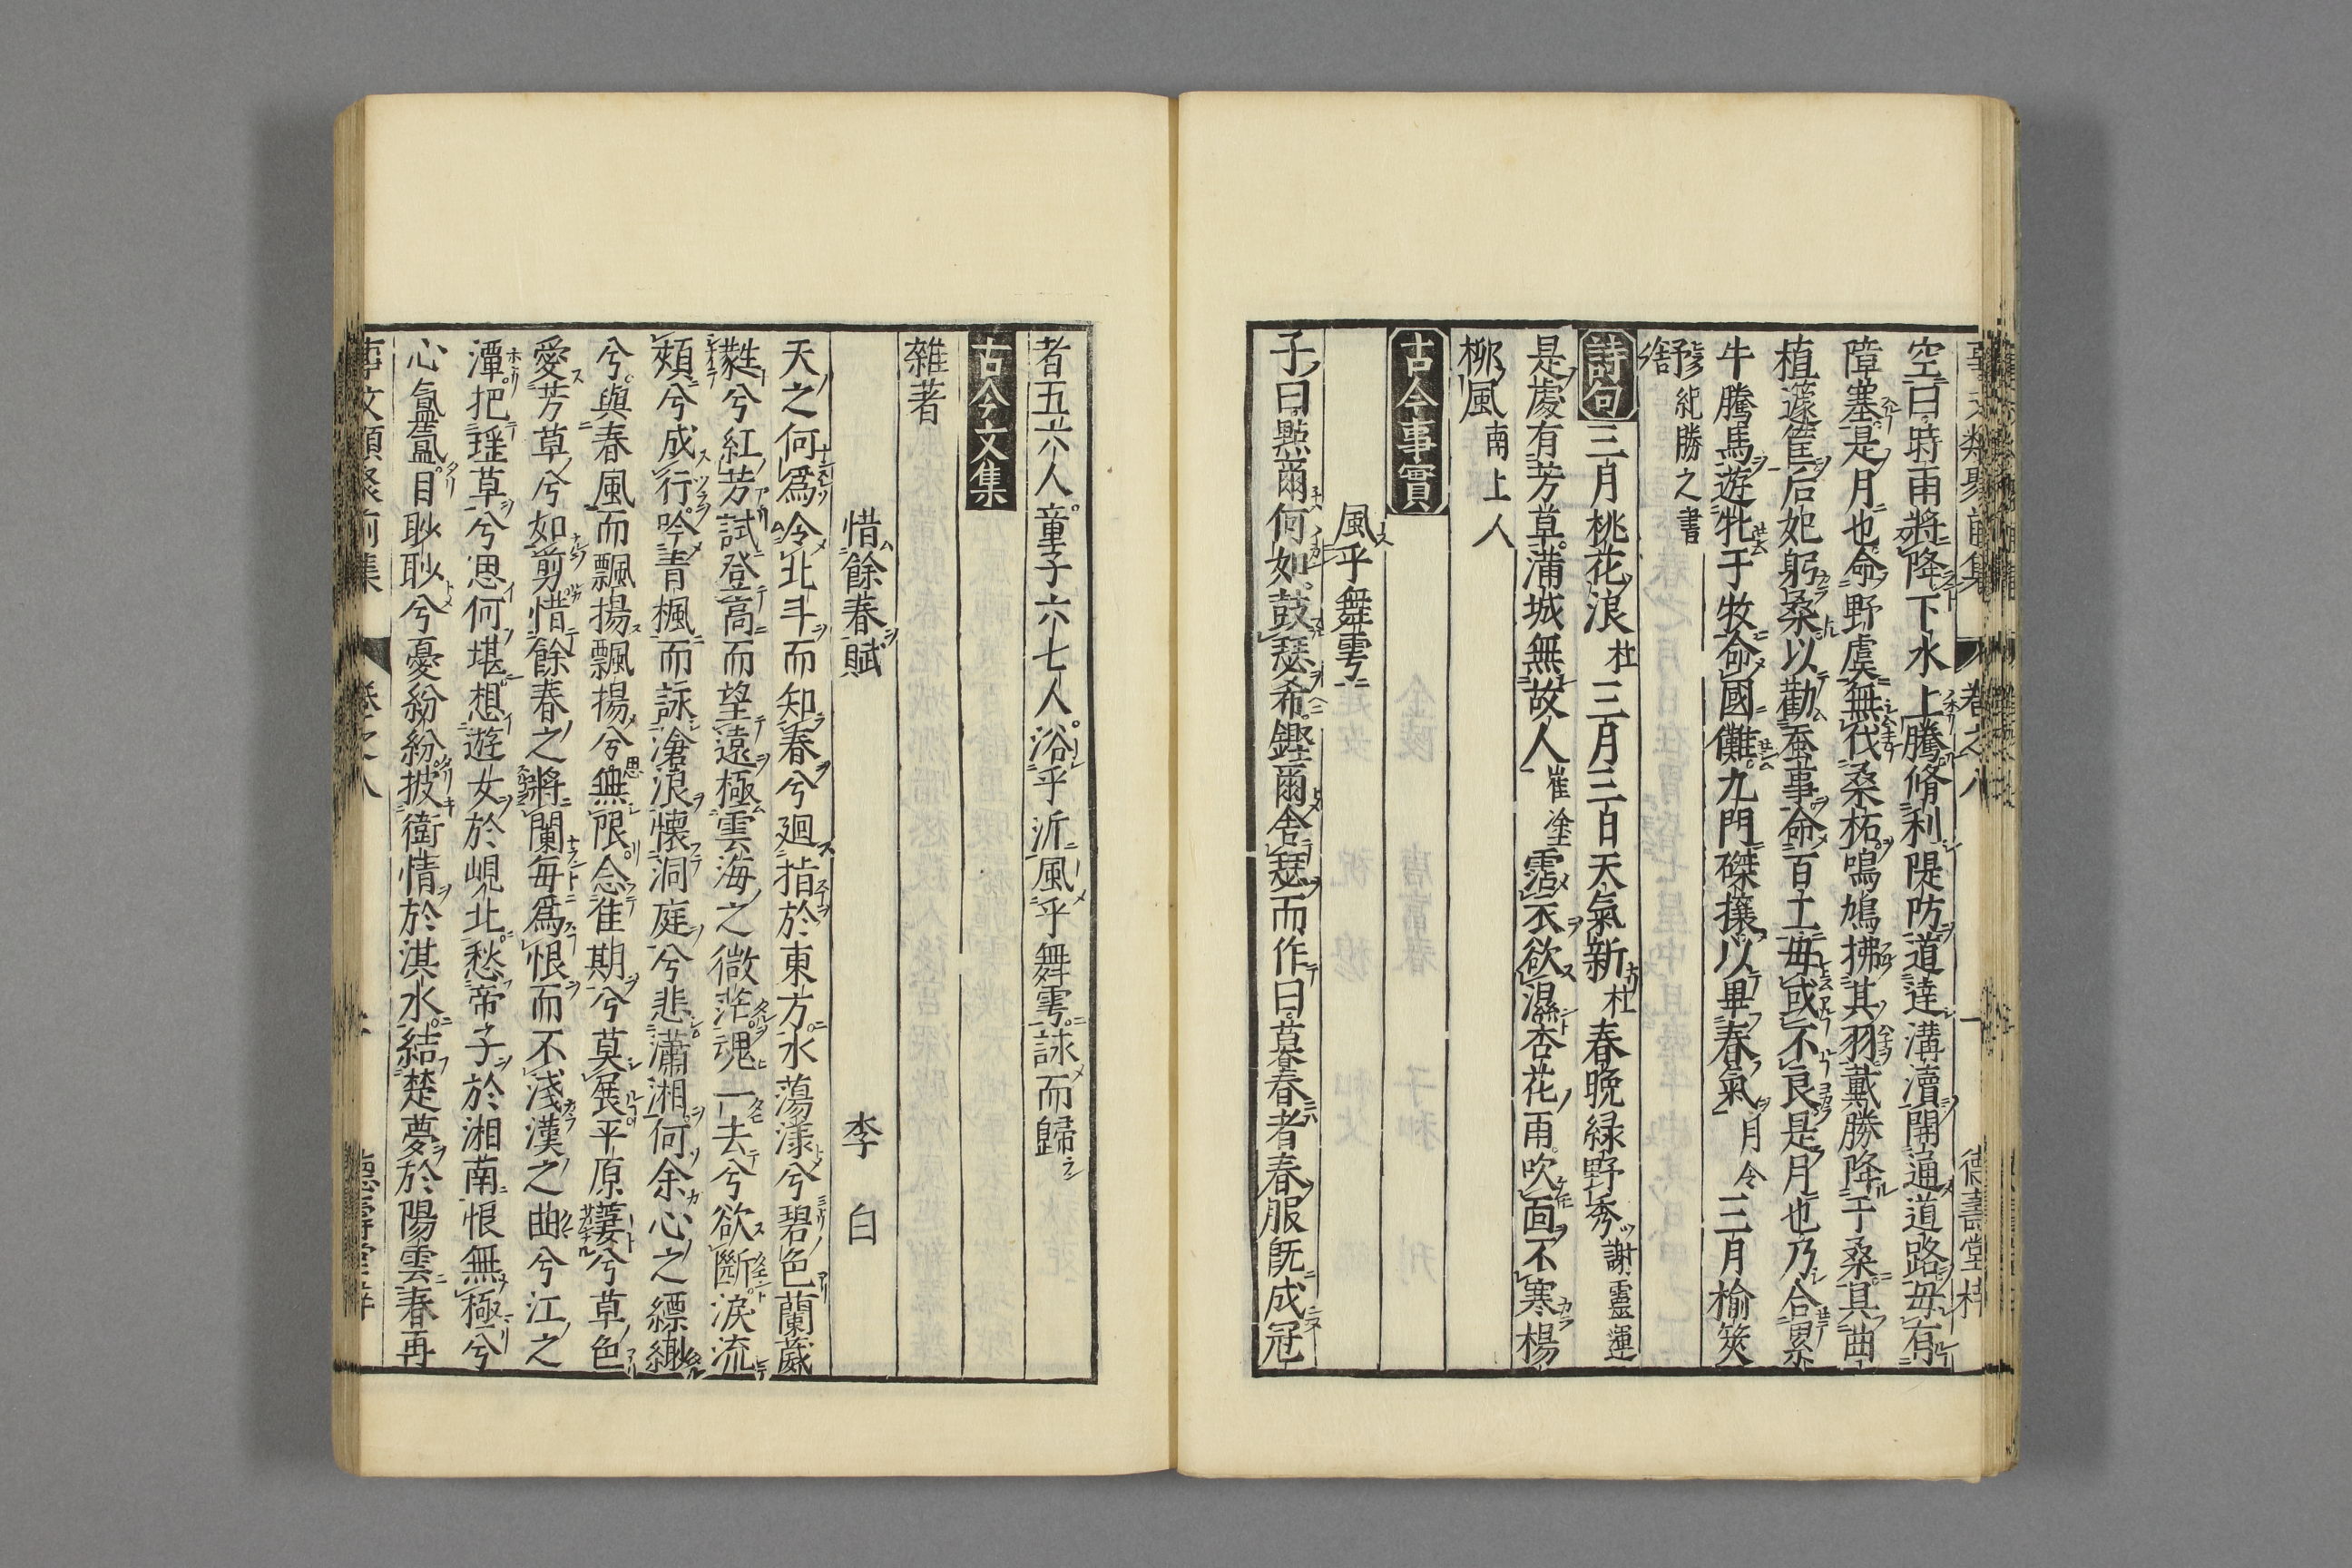 事文類聚前集 卷之八 一 德壽堂梓
空曰時雨將降下水上騰脩利隄防道達溝瀆開通道路毋有
障塞是月也命野虞無伐桑柘鳴鳩拂其羽戴勝降于桑具曲
植籧筐后妃躬桑以勸蚕事命百工毋或不良是月也乃合累
牛騰馬遊牝于牧命國儺九門磔攘以畢春氣月令三月榆莢
紀勝之書
詩句三月桃花浪杜三月三日天氣新杜春晚緑野秀謝靈運
是處有芳草滿城無故人崔塗霑衣欲濕杏花雨吹面不寒楊
柳風南上人
古今事實
風乎舞雩
子曰點爾何如鼓瑟希鏗爾舍瑟而作曰暮春者春服既成冠
者五六人童子六七人浴乎沂風乎舞雩詠而歸
古今文集
雜著
惜餘春賦 李白
天之何爲令北斗而知春兮廻指於東方水蕩漾兮碧色蘭葳
蕤兮紅芳試登高而望遠極雲海之微茫魂一去兮欲斷淚流
頰兮成行吟青楓而詠滄浪懷洞庭兮悲瀟湘何余心之縹緲
兮與春風而飄揚飄揚兮思無限念佳期兮莫展平原萋兮草色
愛芳草兮如剪惜餘春之將闌每爲恨而不淺漢之曲兮江之
潭把瑤草兮思何堪想遊女於峴北愁帝子於湘南恨無極兮
心氳氳目眇眇兮憂紛紛披衛情於淇水結楚夢於陽雲春再
事文類聚前集 卷之八